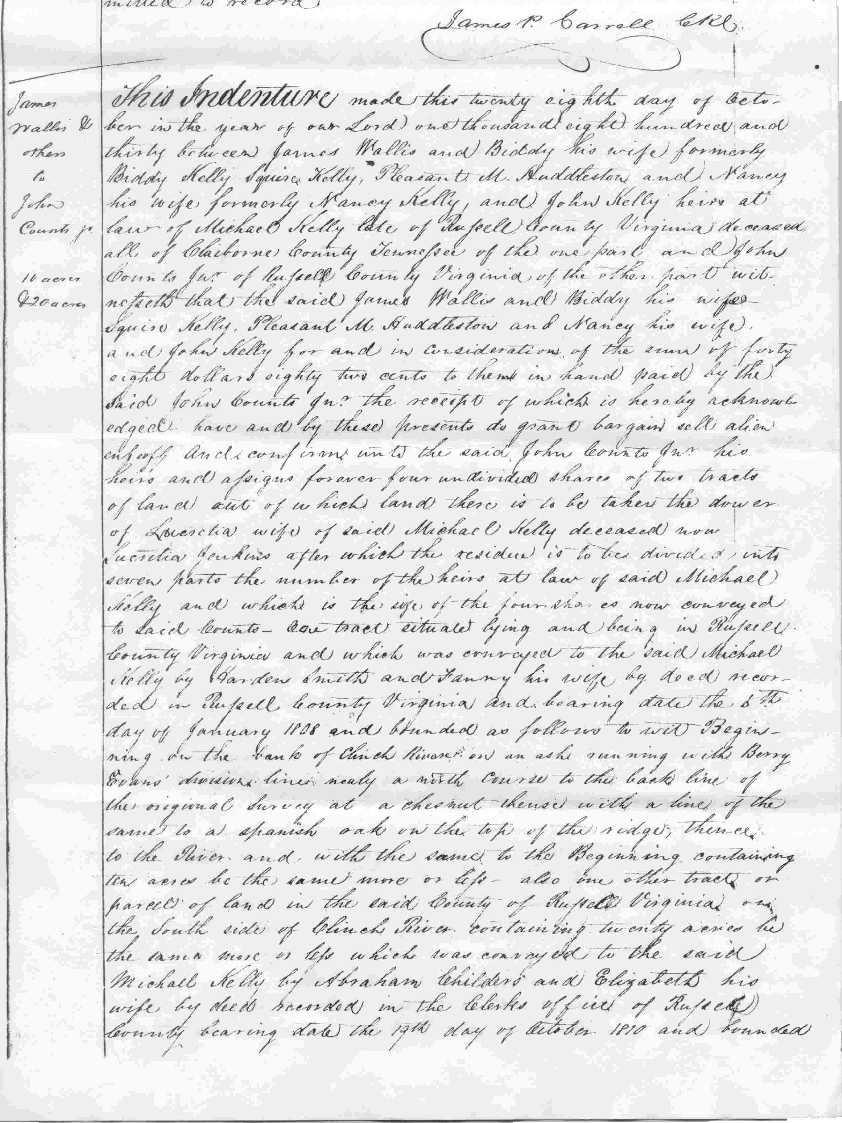 mitted to record
James P. Carrell Clk.
James
Wallis &
others
to
John
Counts jr
10 acres
& 20 acres
This Indenture made this twenty eighth day of Octo-
ber in the year of our Lord one thousand eight hundred and
thirty between James Wallis and Biddy his wife formerly
Biddy Kelly Squire Kelly, Pleasant M. Huddleston and Nancy
his wife formerly Nancy Kelly, and John Kelly heirs at
law of Michael Kelly late of Russell County Virginia deceased
all of Claiborne County Tennessee of the one part and John
Counts Jnr. of Russell County Virginia of the other part wit-
nesseth that the said James Wallis and Biddy his wife-
Squire Kelly, Pleasant M. Huddleston and Nancy his wife,
and John Kelly for and in consideration of the sum of forty
eight dollars eighty two cents to them in hand paid by the
said John Counts Jnr. the receipt of which is hereby acknowl-
edged have and by these presents do grant bargain sell alien
enfeoff and confirm unto the said John Counts Jnr his
heirs and assigns forever four undivided shares of two tracts
of land out of which land there is to be taken the dower
of Lucretia wife of said Michael Kelly deceased now
Lucretia Jenkins after which the residue is to be divided into
seven parts the number of the heirs at law of said Michael
Kelly and which is the size of the four shares now conveyed
to said Counts- One tract situate lying and being in Russell
County Virginia and which was conveyed to the said Michael
Kelly by Harden Smith and Fanny his wife by deed recor-
ded in Russell County Virginia and bearing date the 5th
day of January 1808 and bounded as follows to wit Begin-
ning on the bank of Clinch River on an ash running with Berry
Evans' division line nealy a north course to the back line of
the origional Survey at a chesnut thense with a line of the
same to a spanish oak on the top of the ridge, thence
to the River and with the same to the Beginning containing
ten acres be the same more or less- also one other tract or
parcel of land in the said County of Russell Virginia on
the South side of Clinch River containing twenty acres be
the same more or less which was conveyed to the said
Michael Kelly by Abraham Childers and Elizabeth his
wife by deed recorded in the Clerks office of Russell
County bearing date the 19th day of October 1810 and bounded